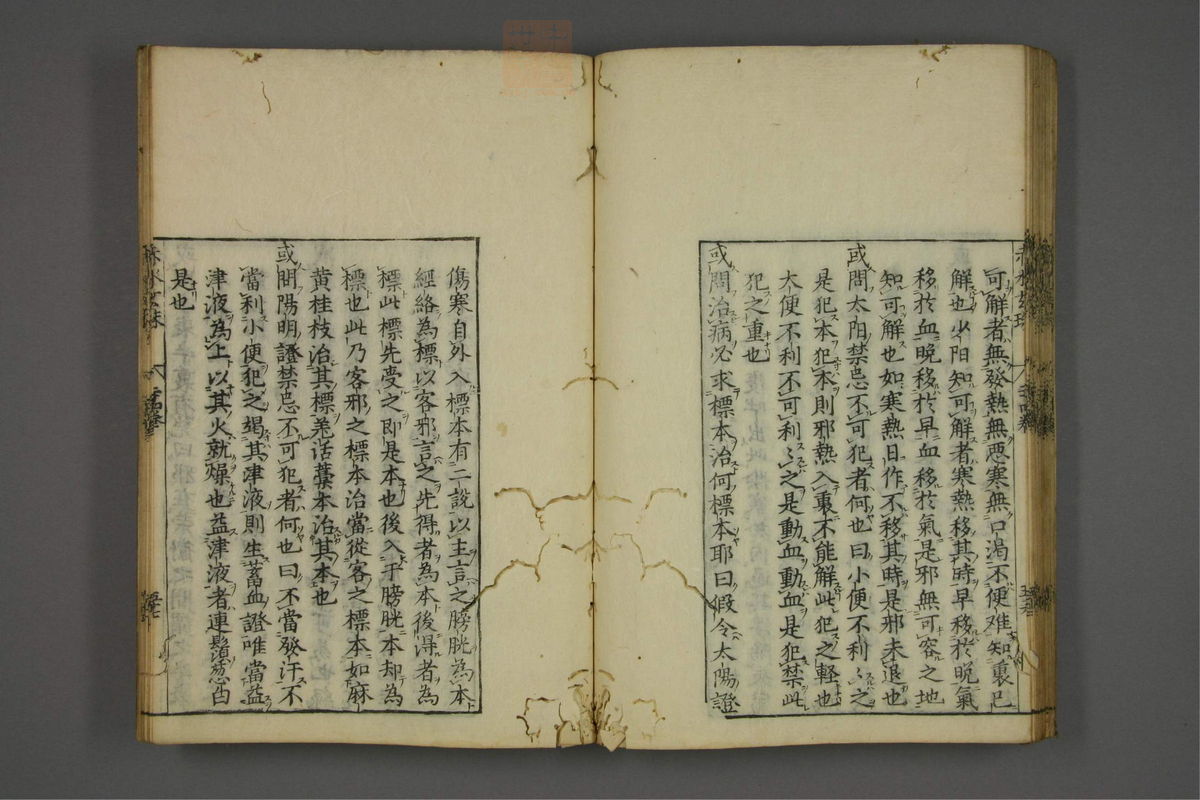 可解者無發熱無悪寒無口渴不便难知裏已
解也少阳知可解者寒熱移其時早移於晩氣
移於血晩移於早血移於氣是邪無可容之地
知可解也如寒熱日作不移其時是邪未退也
或問太阳禁忌不可犯者何也曰小便不利〻之
是犯本犯本則邪熱入裏不能解此犯之軽也
大便不利不可利〻之是動血動血是犯禁此
犯之重也
或問治病必求標本治何標本耶曰假令太陽證
傷寒自外入標本有二說以主言之膀胱為本
經絡為標以客邪言之先得者為本後得者為
標此標先受之即是本也後入于膀胱本却為
標也此乃客邪之標本治當從客之標本如麻
黄桂枝治其標羌活藁本治其本也
或問陽明證禁忌不可犯者何也曰不當發汗不
當利小便犯之竭其津液則生蓄血證唯當益
津液為上以其火就燥也益津液者連鬚葱白
是也